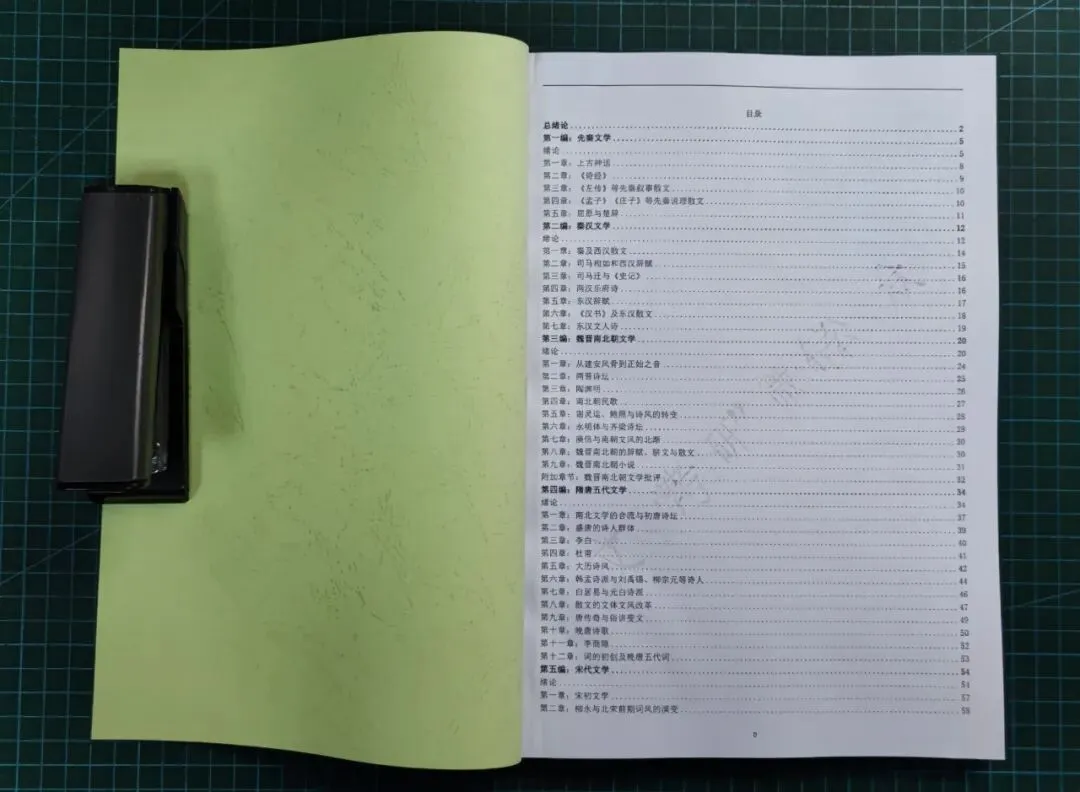 目录
总绪论 2
第一编：先秦文学 5
绪论 5
第一章：上古神话 8
第二章：《诗经》 9
第三章：《左传》等先秦叙事散文 10
第四章：《孟子》《庄子》等先秦说理散文 10
第五章：屈原与楚辞 11
第二编：秦汉文学 12
绪论 12
第一章：秦及西汉散文 14
第二章：司马相如和西汉辞赋 15
第三章：司马迁与《史记》 16
第四章：两汉乐府诗 16
第五章：东汉辞赋 17
第六章：《汉书》及东汉散文 18
第七章：东汉文人诗 19
第三编：魏晋南北朝文学 20
绪论 20
第一章：从建安风骨到正始之音 24
第二章：两晋诗坛 25
第三章：陶渊明 26
第四章：南北朝民歌 27
第五章：谢灵运、鲍照与诗风的转变 28
第六章：永明体与齐梁诗坛 29
第七章：庾信与南朝文风的北渐 30
第八章：魏晋南北朝的辞赋、骈文与散文 30
第九章：魏晋南北朝小说 31
附加章节：魏晋南北朝文学批评 32
第四编：隋唐五代文学 34
绪论 34
第一章：南北文学的合流与初唐诗坛 37
第二章：盛唐的诗人群体 39
第三章：李白 40
第四章：杜甫 41
第五章：大历诗风 42
第六章：韩孟诗派与刘禹锡、柳宗元等诗人 44
第七章：白居易与元白诗派 46
第八章：散文的文体文风改革 47
第九章：唐传奇与俗讲变文 49
第十章：晚唐诗歌 50
第十一章：李商隐 52
第十二章：词的初创及晚唐五代词 53
第五编：宋代文学 54
绪论 54
第一章：宋初文学 57
第二章：柳永与北宋前期词风的演变 58
0